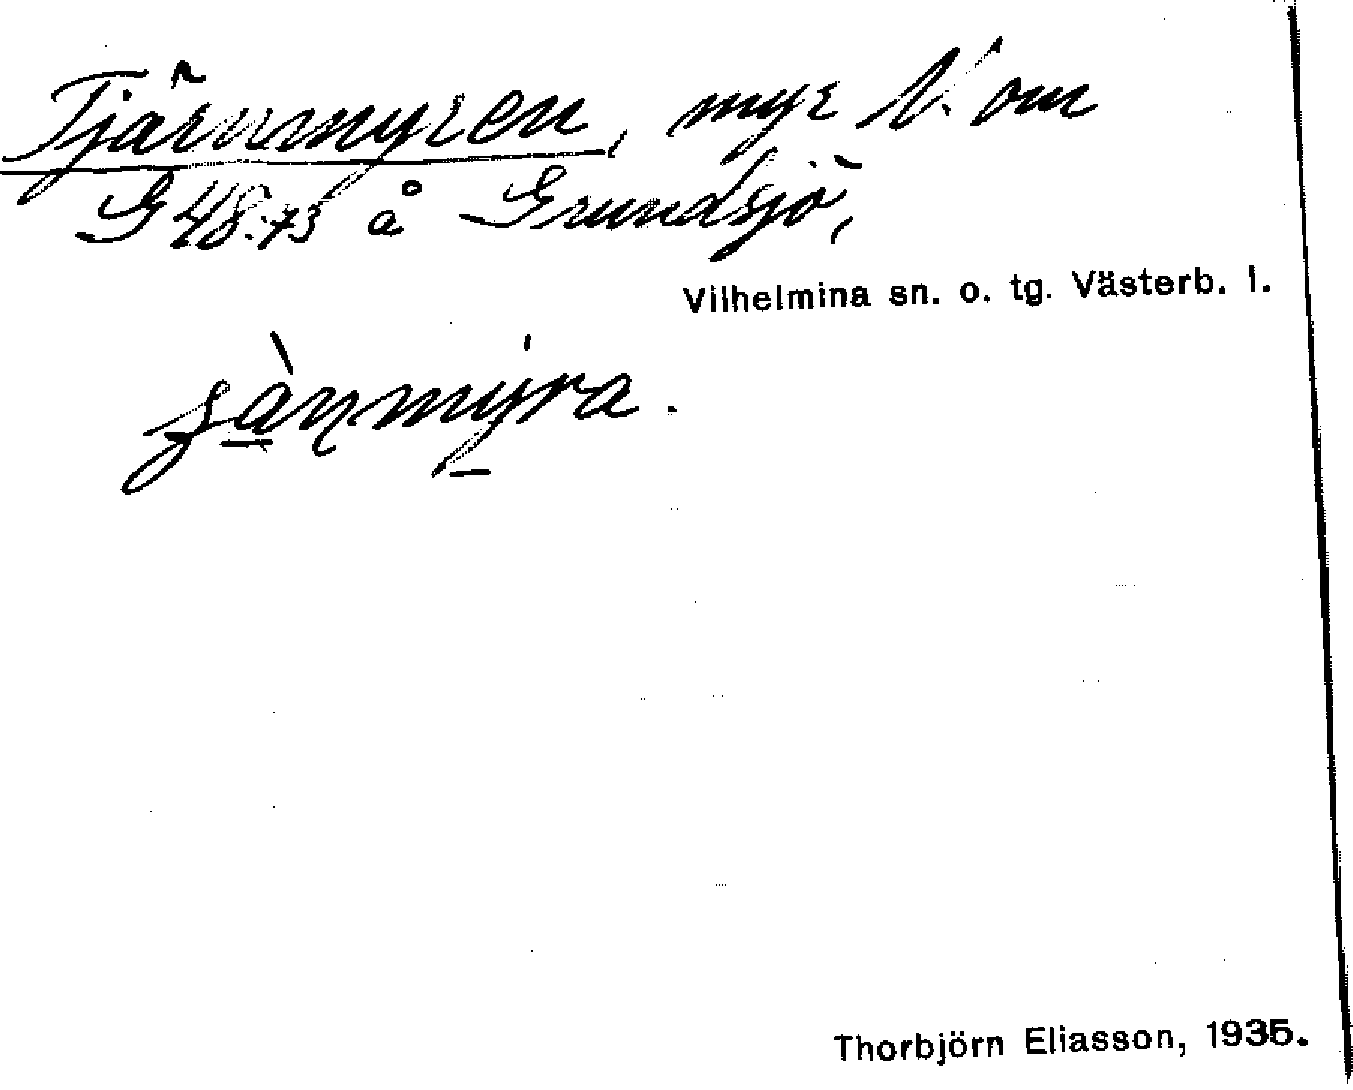 Tjärnmyren, myr N. om
G 48:73 å Grundsjö,
Vilhelmina sn. o. tg. Västerb. l.
Thorbjörn Eliasson, 1935.